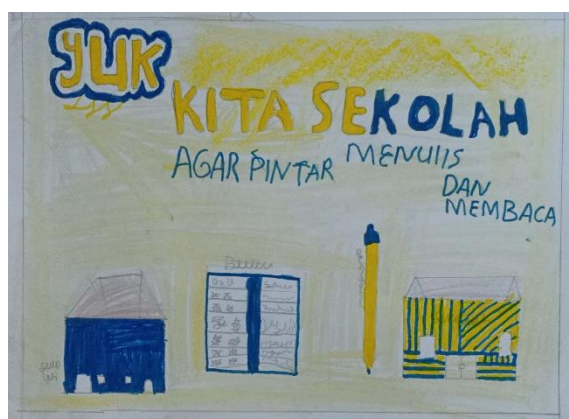 YUK
KITA SEKOLAH
AGAR PINTAR MENUlIS
DAN
MEMBACA